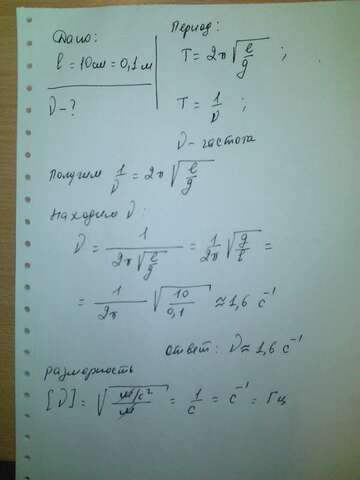 Дано:
l = 10см = 0,1 м
ν - ?
Период:
T = 2π√(l/g) ;
T = 1/ν ;
ν - частота
Получим 1/ν = 2π√(l/g)
Находим ν:
ν = 1/(2π√(l/g)) = 1/2π √(g/l) =
= 1/2π √(10/0,1) ≈ 1,6 с⁻¹
Ответ: ν ≈ 1,6 с⁻¹
Размерность
[ν] = √((м/с²)/м) = 1/с = с⁻¹ = Гц